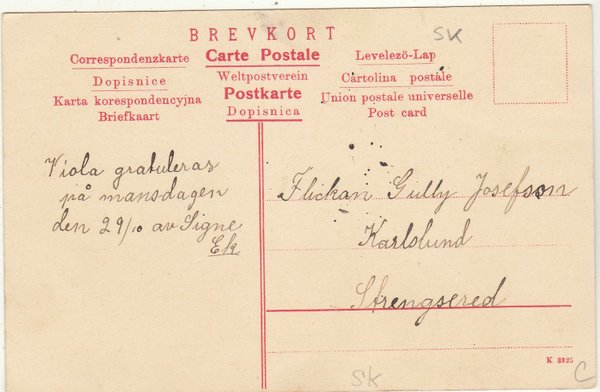 BREVKORT
SK
Correspondenzkarte
Carte Postale
Levelezö-Lap
Dopisnice
Weltpostverein
Cartolina postale
Karta korespondencyjna
Postkarte
Union postale universelle
Briefkaart
Dopisnica
Post card
Viola gratuleras
på mansdagen
den 29/10 av Signe
Ek
Flickan Gully Josefson
Karlslund
Strengsered
K 3325
SK
C